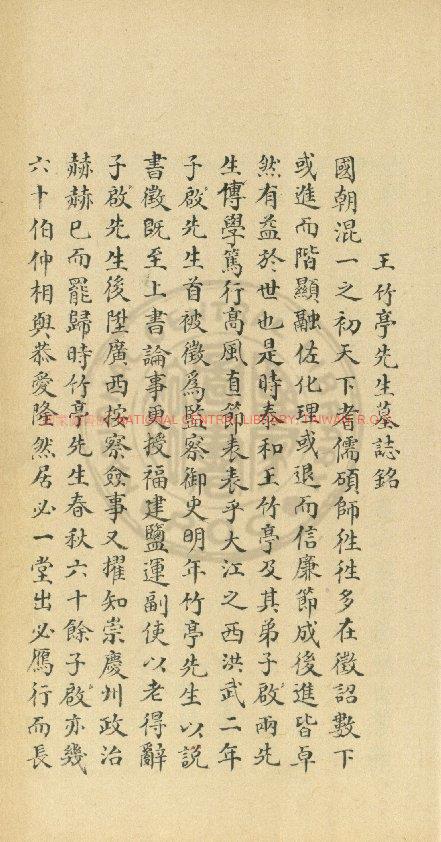 王竹亭先生墓誌銘
國朝混一之初天下老儒碩師徃徃多在徵詔數下
或進而階顯融佐化理或退而信廉節成後進皆卓
然有益於世也是時泰和王竹亭及其弟子啟兩先
生傳學篤行高風直節表表乎大江之西洪武二年
子啟先生首被徵爲監察御史明年竹亭先生以説
書徵既至上書論事更授福建鹽運副使以老得辭
子啟先生後陞廣西按察僉事又擢知崇慶州政治
赫赫巳而罷歸時竹亭先生春秋六十餘子啟亦幾
六十伯仲相與恭愛隆然居必一堂出必鴈行而長
NATIONAL CENTRAL LIBRARY, TAIWAN R.O.C